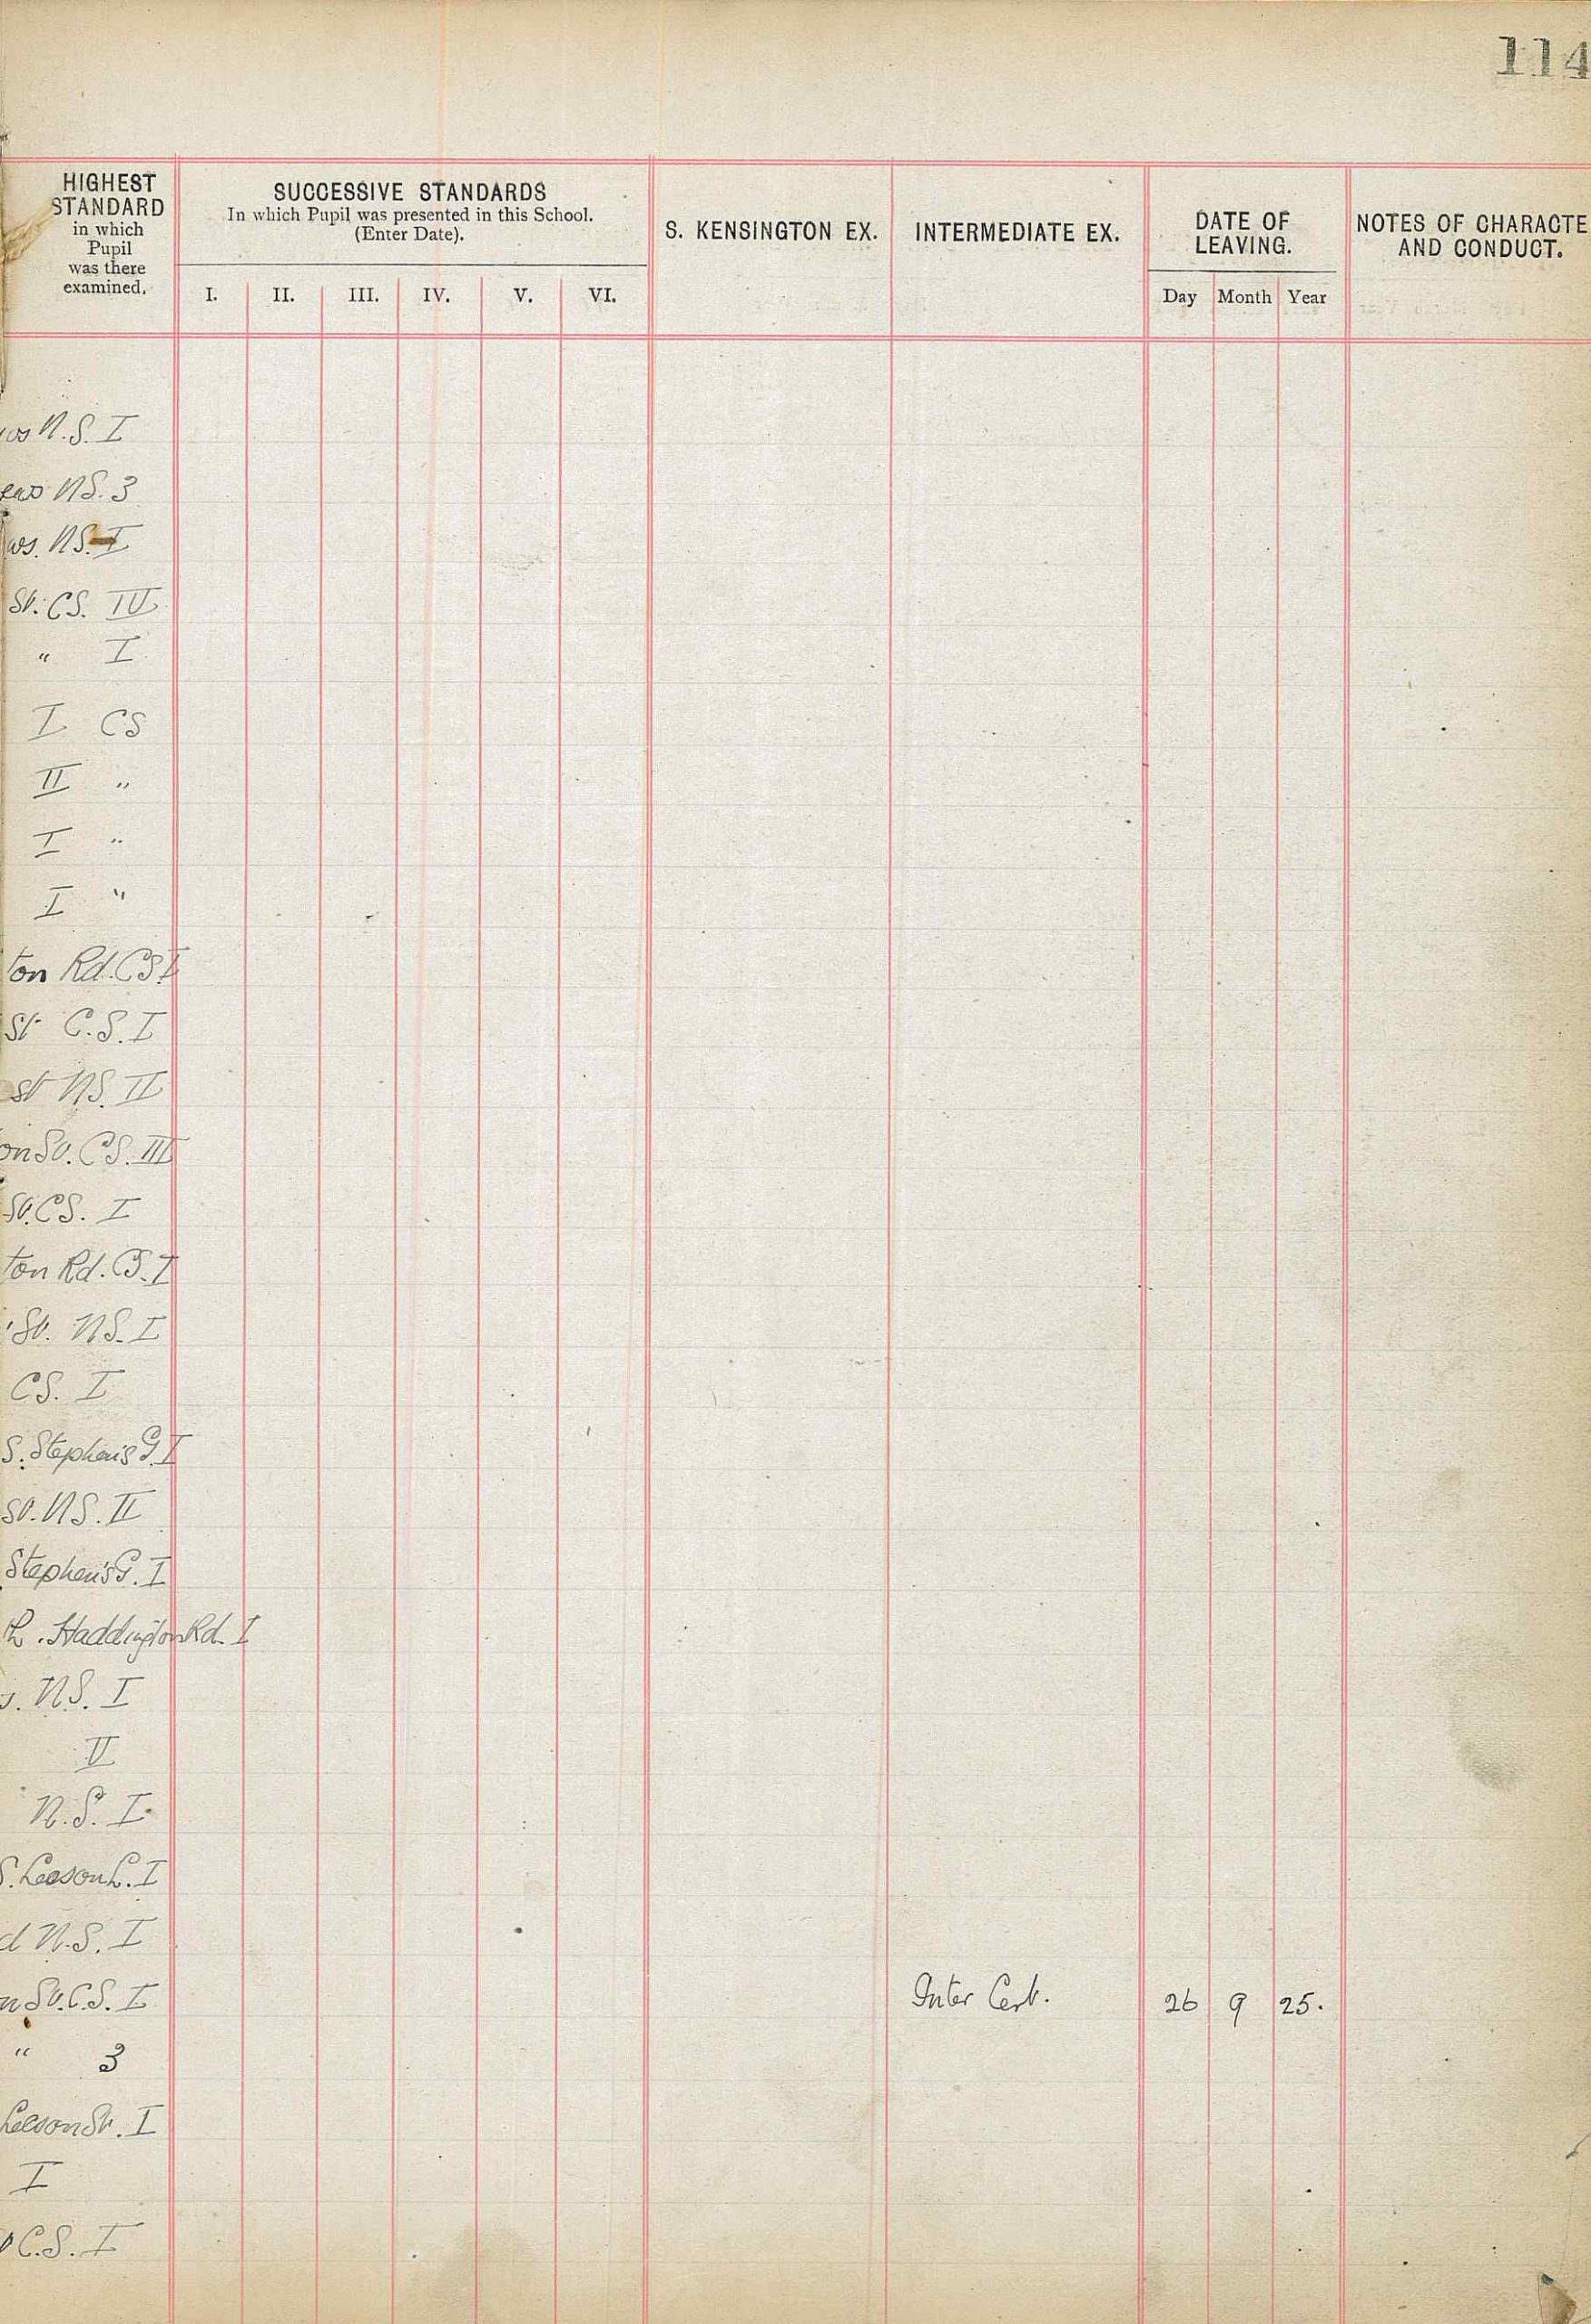 114
HIGHEST STANDARD in which Pupil was there examined.
SUCCESSIVE STANDARDS
In which Pupil was presented in this School.
(Enter Date).
I. II. III. IV. V. VI.
S. KENSINGTON EX.
INTERMEDIATE EX.
DATE OF LEAVING.
Day Month Year
NOTES OF CHARACTE
AND CONDUCT.
N.S. I
NS. 3
ws. NS. I
St. CS. IV
" I
I CS
II "
I "
I "
ton Rd. CS. I
St C.S. I
st NS. II
on St. CS. III
St. CS. I
ton Rd. CS. I
St. NS. I
CS. I
S. Stephen's G. I
St. NS. II
Stephen's G. I
Haddington Rd. I
s. NS. I
II
N.S. I
S. Leeson L. I
d N.S. I
n St. C.S. I Inter Cert. 26 9 25.
" 3
Leeson St. I
I
C.S. I